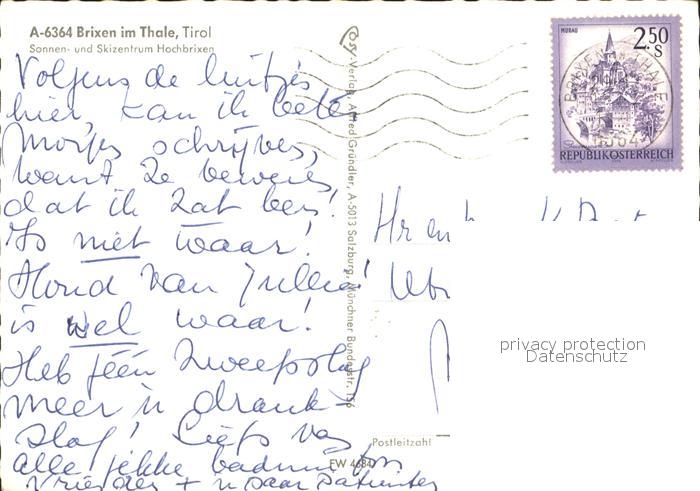 A-6364 Brixen im Thale, Tirol
Sonnen- und Skizentrum Hochbrixen
Volgens de
hier, kan ik beter
Morjes schrijven,
want ze beweren,
dat ik zat ben!
Is niet waar!
Houd van jullie!
is wel waar!
Heb géén zweepslag
meer in drank-
slag! Liefs van
alle gekke badminton
vrienden + 'n paar
Verlag Alfred Gründler, A-5013 Salzburg, Münchner Bundesstr. 156
MURAU
2.50 S
REPUBLIK ÖSTERREICH
BRIXEN THALE
6364
Hr en
privacy protection
Datenschutz
Postleitzahl